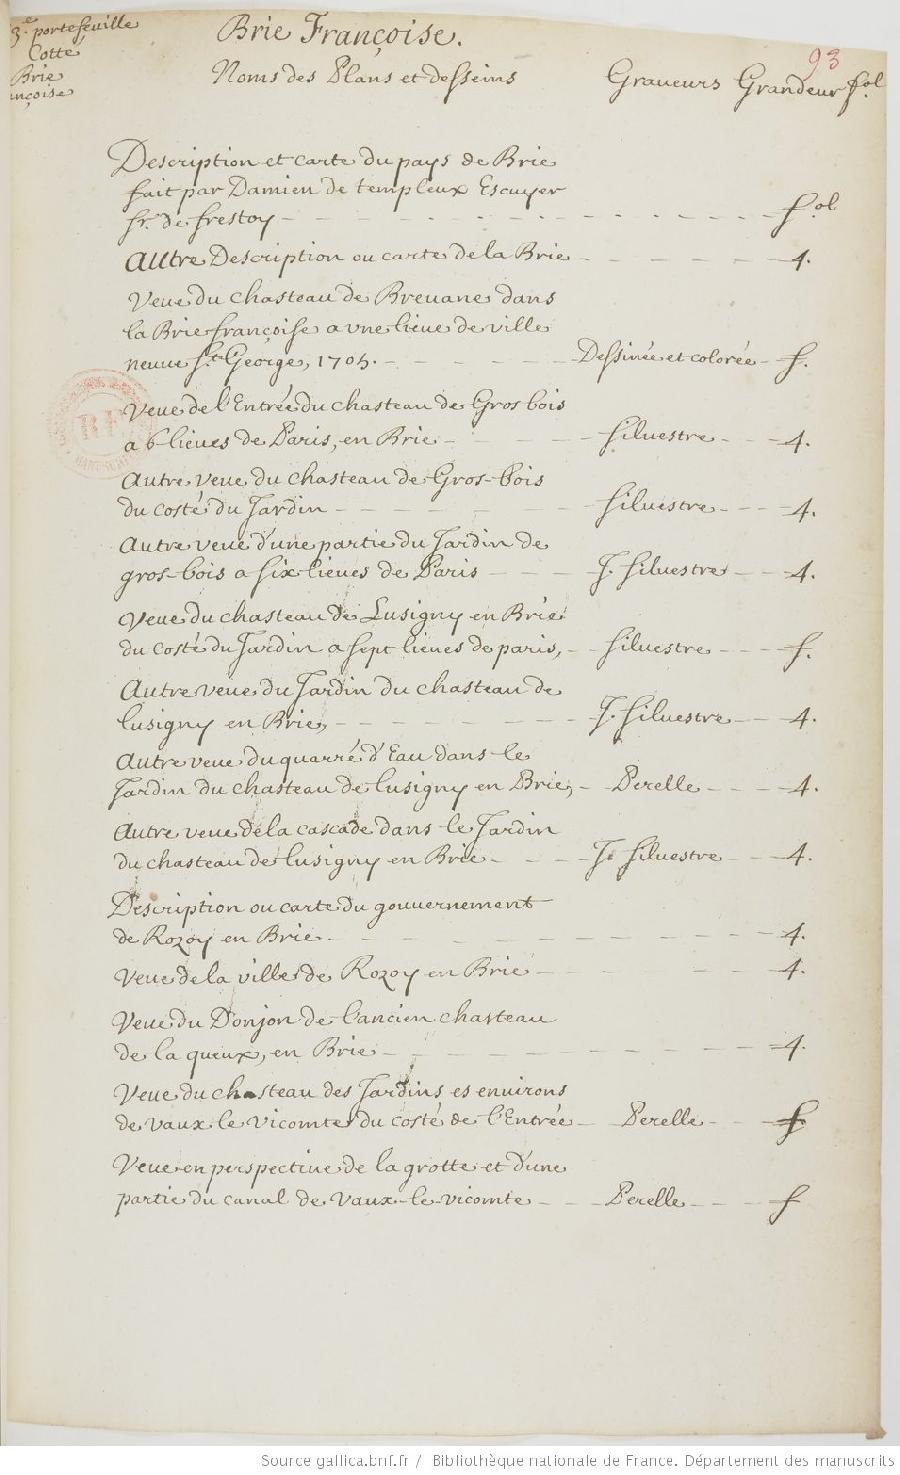 3.e portefeuille
Cotté
Brie
ançoise
Brie Françoise.
93
Noms des Plans et desseins Graveurs Grandeur fol.
Description et carte du pays de Brie
fait par Damien de templeux Escuyer
sr. de frestoy - - - - - - fol
Autre Description ou carte de la Brie - - - - 4.
Veue du chasteau de Brevane dans
la Brie françoise a vne lieue de ville
neuue St. George, 1705. - - - Dessinée et colorée - f.
Veue de l'Entrée du chasteau de Gros bois
a 6 lieues de Paris, en Brie - - - - Siluestre - - 4.
Autre veue du chasteau de Gros-bois
du costé du Jardin - - - - - Siluestre - - - 4.
Autre veue d'une partie du Jardin de
gros-bois a six lieues de Paris - - - J. Siluestre - - 4.
Veue du chasteau de Lusigny en Brie
du costé du Jardin a sept lieues de paris, - - Siluestre - - f.
Autre veue du Jardin du chasteau de
lusigny en Brie, - - - - - J. Siluestre - - 4.
Autre veue du quarré d'Eau dans le
Jardin du chasteau de lusigny en Brie, - Perelle - - - 4.
Autre veue de la cascade dans le Jardin
du chasteau de lusigny en Brie - - - J. Siluestre - - 4.
Description ou carte du gouuernement
de Rozoy en Brie - - - - - - 4.
Veue de la ville de Rozoy en Brie - - - - 4.
Veue du Donjon de l'ancien chasteau
de la queux, en Brie - - - - - - 4.
Veue du chasteau des Jardins es environs
de vaux le vicomte du costé de l'Entrée - Perelle - - f
Veue en perspective de la grotte et d'une
partie du canal de vaux-le-vicomte - - Perelle - - - f
RF
Source gallica.bnf.fr / Bibliothèque nationale de France. Département des manuscrits